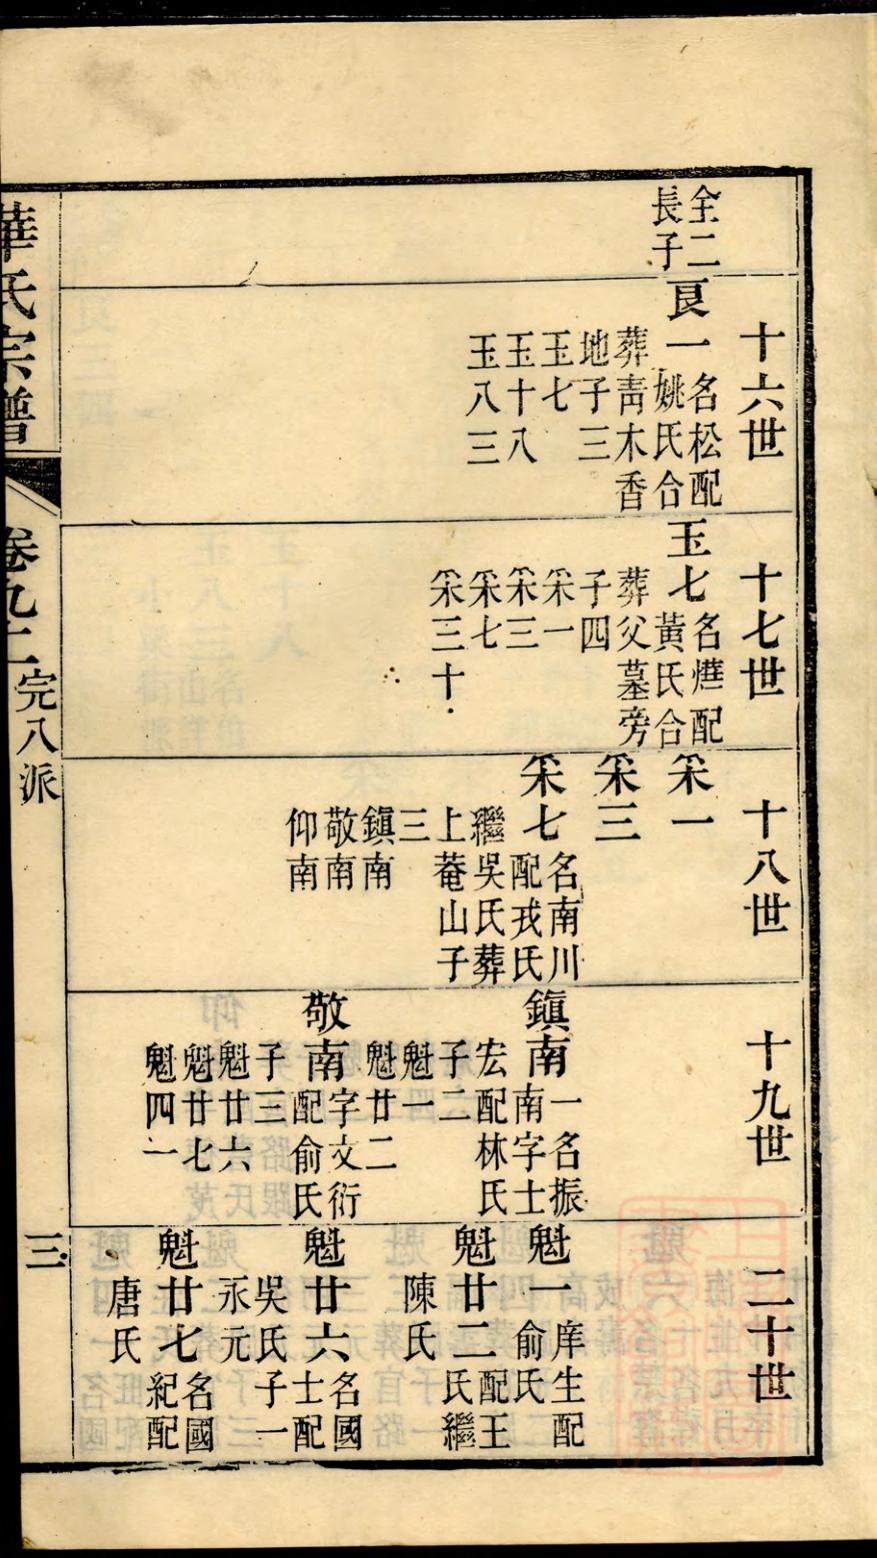 全二
長子
十六世
艮一
名松配
姚氏合
葬靑木香
地子三
玉七
玉十八
玉八三
十七世
玉七
名㷸配
黃氏合
葬父墓旁
子四
采一
采三
采七
采三十
十八世
采一
采三
采七
名南川
配戎氏
繼吳氏葬
上菴山子
三
鎮南
敬南
仰南
十九世
鎮南
一名振
南字士
宏配林氏
子二
魁一
魁廿二
敬南
字文衍
配俞氏
子三
魁廿六
魁廿七
魁四一
二十世
魁一
庠生配
俞氏
魁廿二
配王
氏繼
陳氏
魁廿六
名國
士配
吳氏子一
永元
魁廿七
名國
紀配
唐氏
華氏宗譜
卷九二
完八派
三